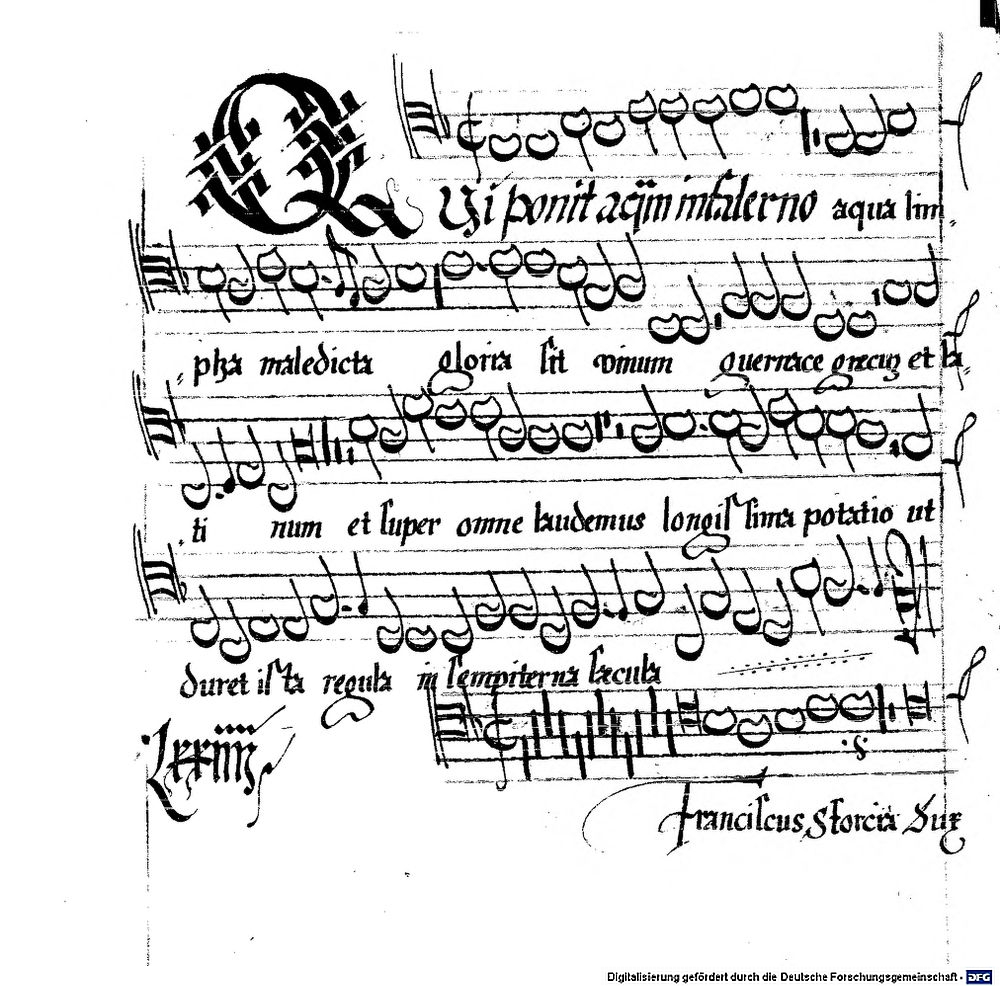 QUi ponit aq̃m in falerno aqua lim-
pha maledicta gloria sit vinum guernace et la-
ti num et super omne laudemus longissima potatio ut
duret ista regula in sempiterna sæcula
Lxxiiij
franciscus Sforcia Dux
Digitalisierung gefördert durch die Deutsche Forschungsgemeinschaft - DFG